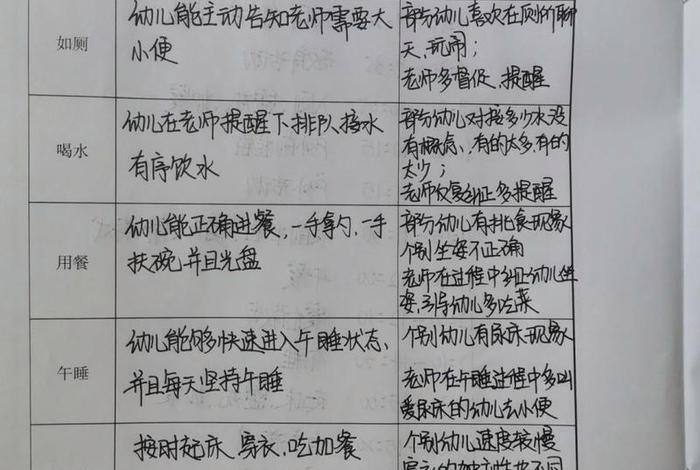 如厕
幼儿能主动告知老师需要大
小便
部分幼儿喜欢在厕所聊
天、玩闹；
老师多督促、提醒
喝水
幼儿在老师提醒下排队接水
有序饮水
部分幼儿对接多少水没
有概念、有的太多,有的
太少；
老师反复纠正多提醒
用餐
幼儿能正确进餐,一手拿勺,一手
扶碗,并且光盘
部分幼儿有挑食现象
个别坐姿不正确
老师在过程中纠正幼儿坐
姿,引导幼儿多吃菜
午睡
幼儿能够快速进入午睡状态、
并且每天坚持午睡
个别幼儿有尿床现象
老师在午睡过程中多叫
爱尿床的幼儿去小便
按时起床、穿衣、吃加餐
个别幼儿速度较慢